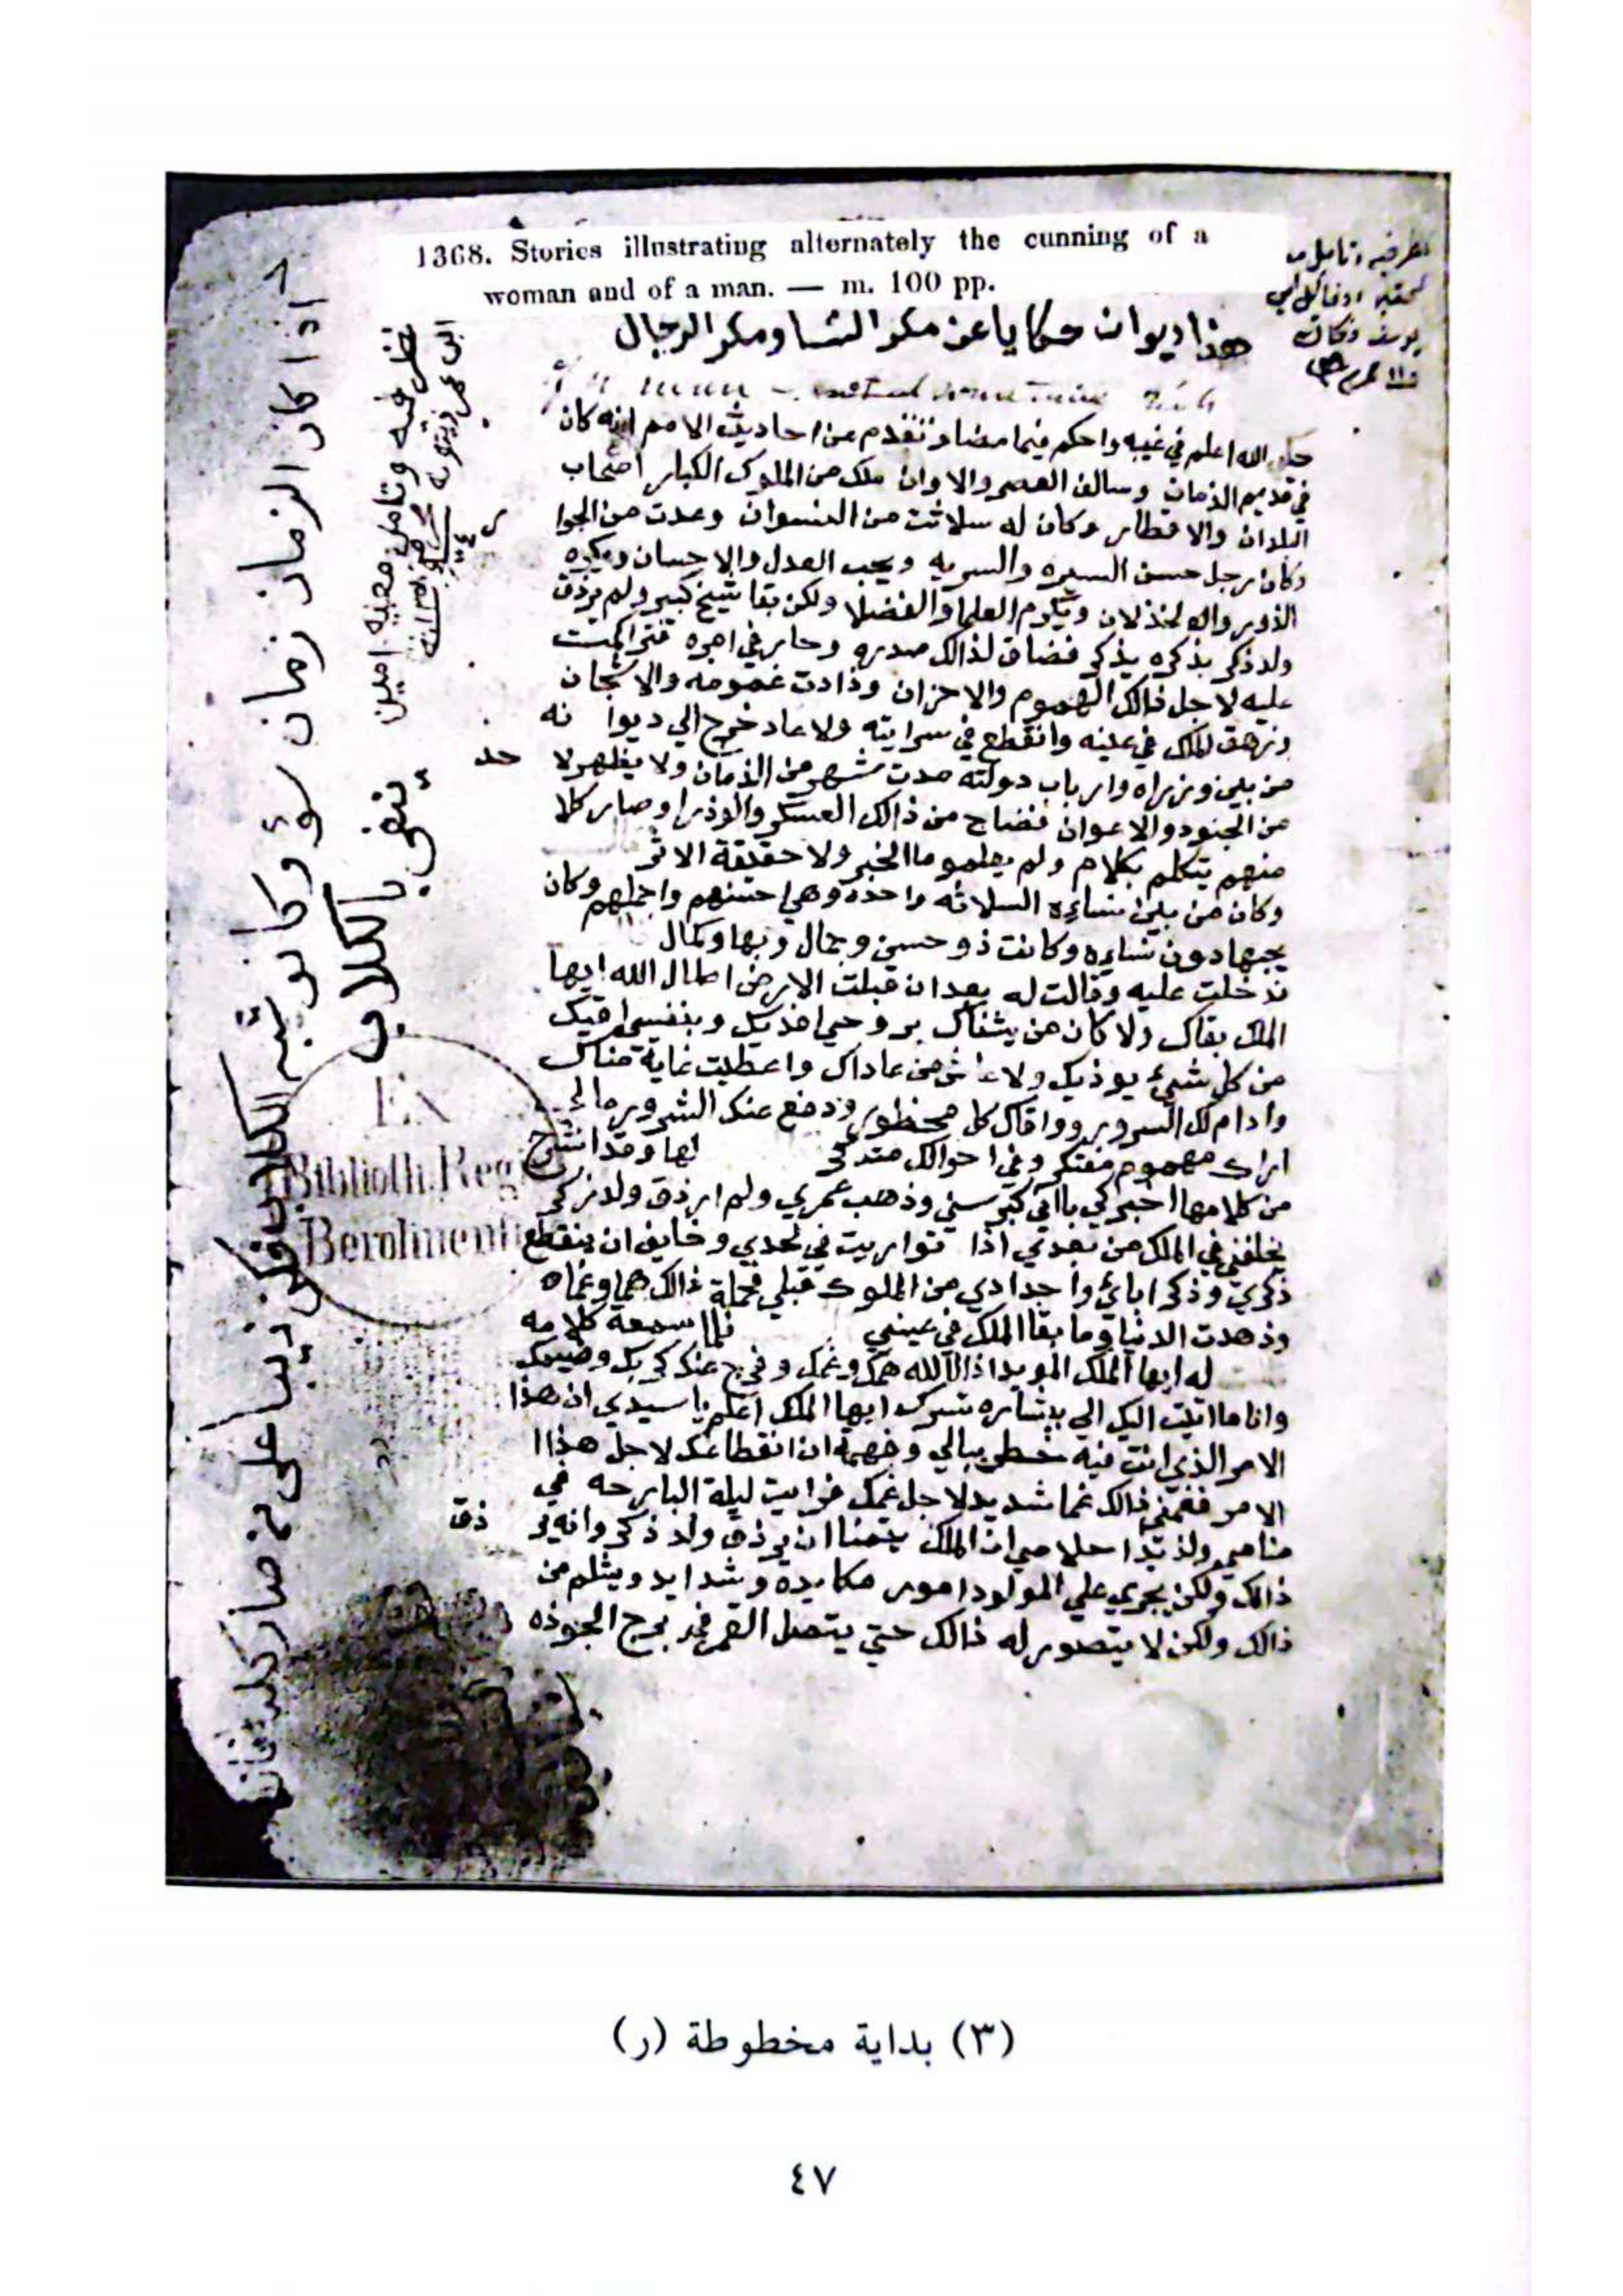 1368. Stories illustrating alternately the cunning of a
woman and of a man. — m. 100 pp.
هذا ديوان حكايا عن مكر النسا ومكر الرجال
الله اعلم في غيبه واحكم فيما مضا وتقدم عن احاديث الامم انه كان
في قديم الذمان وسالف العصر والاوان ملك من الملوك الكبار اصحاب
البلدان والاقطار وكان له سلاثت من النسوان وعدت من الجوا
وكان رجل حسن السيره والسريه ويحب العدل والاحسان ويكره
الذور والخذلان ويكرم العلما والفضلا ولكن بقا شيخ كبير ولم يرذق
ولد ذكر بذكره يذكر فضاق لذالك صدره وحار في امره فتراكمت
عليه لاجل ذالك الهموم والاحزان وذادت غمومه والاشجان
وزهق الملك في عينه وانقطع في سرايته ولا عاد خرج الي ديوا نه
من بين وزراه وارباب دولته مدت شهر من الذمان ولا يظهر لا حد
من الجنود والاعوان فضاج من ذالك العسكر والوذرا وصار كلا
منهم يتكلم بكلام ولم يعلمو ما الخبر ولا حقيقة الاثر
وكان من بين نسايه السلاثه واحده وهي احسنهم واجملهم وكان
يحبها دون نسايه وكانت ذو حسن وجمال وبها وكمال
فدخلت عليه وقالت له بعد ان قبلت الارض اطال الله ايها
الملك بقاك ولا كان من يشناك بروحي افديك وبنفسي اقيك
من كل شيء يوذيك ولا عاش من عاداك واعطيت غاية مناك
وادام لك السرور وواقاك كل محظور ودفع عنك الشرور مالي
اراك مهموم مفتكر وفي احوالك متدكر لها وقد انشرح
من كلامها اخبركي باني كبر سني وذهب عمري ولم ارذق ولد ذكر
يخلفني في الملك من بعدي اذا تواريت في لحدي وخايف ان ينقطع
ذكري وذكر ابائي واجدادي من الملوك قبلي فحملة ذالك هما وغماه
وذهدت الدنيا وما بقا الملك في عيني فلما سمعة كلامه
له ايها الملك المويد اذال الله همك وغمك وفرج عنك كربك وضيمك
وانا ما اتيت اليك الي بشاره تسرك ايها الملك اعلم يا سيدي ان هذا
الامر الذي انت فيه خطر ببالي وفهمة ان انقطاعك لاجل هذا ا
الامر فغمني ذالك غما شديد لاجل غمك فرايت ليلة البارحه في
منامي ولذيذ احلامي ان الملك يتمنا ان يرذق ولد ذكر وانه ير ذق
ذالك ولكن يجري علي المولود امور مكايده وشدايد ويسلم من
ذالك ولكن لا يتصور له ذالك حتي يتصل القمر في برج الجوذه
اذا كان الزمان زمان سوء وكانو
ينقي بالكلاب
نظر فيه وتامل معنيه امين
Ex
Biblioth. Reg
Berolinen
(٣) بداية مخطوطة (ر)
٤٧